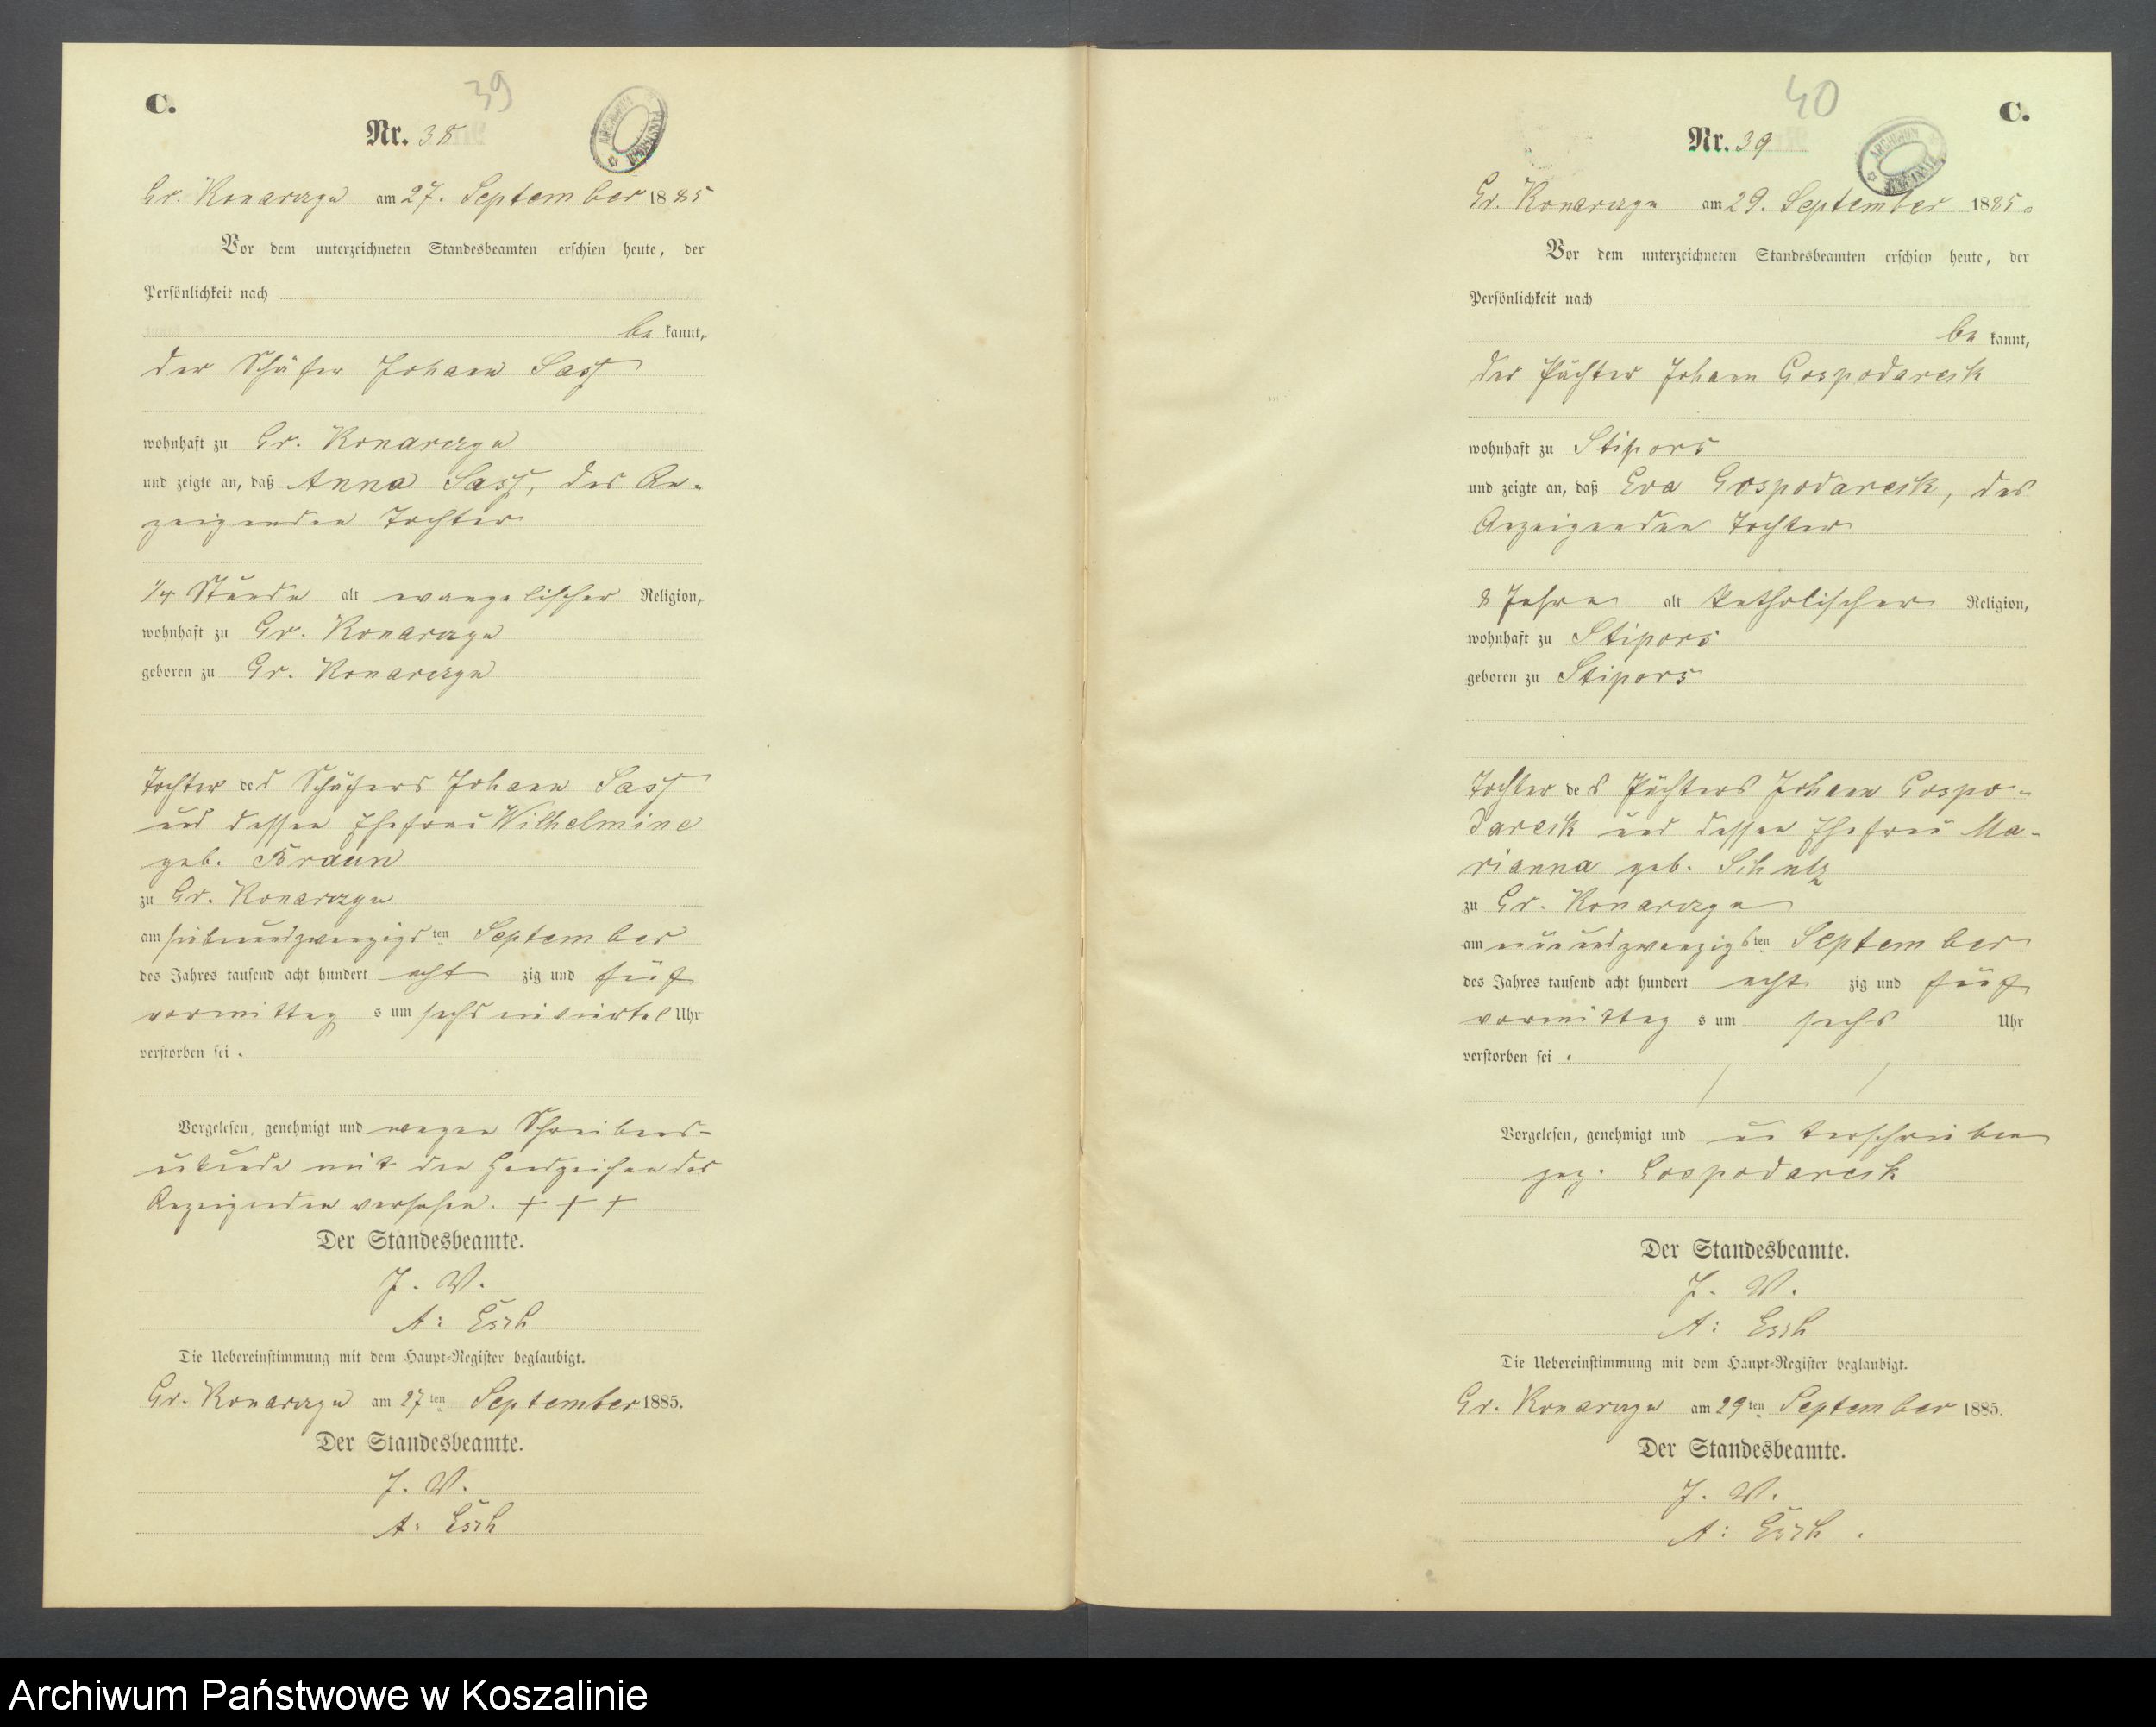 C.
39
Nr. 38
Gr. Konarczyn am 27. September 1885
Vor dem unterzeichneten Standesbeamten erschien heute, der
Persönlichkeit nach
be kannt,
der Schäfer Johann Sass
wohnhaft zu Gr. Konarczyn
und zeigte an, daß Anna Sass, des An-
zeigenden Tochter
1/4 Stunde alt evangelischer Religion,
wohnhaft zu Gr. Konarczyn
geboren zu Gr. Konarczyn
Tochter des Schäfers Johann Sass
und dessen Ehefrau Wilhelmine
geb. Braun
zu Gr. Konarczyn
am siebenundzwanzigsten September
des Jahres tausend acht hundert acht zig und fünf
vormittag s um sechs einviertel Uhr
verstorben sei.
Vorgelesen, genehmigt und wegen Schreibens-
unkunde mit den Handzeichen des
Anzeigenden versehen. + + +
Der Standesbeamte.
J. V.
A: Esch
Die Uebereinstimmung mit dem Haupt-Register beglaubigt.
Gr. Konarczyn am 27ten September 1885.
Der Standesbeamte.
J. V.
A: Esch
40
C.
Nr. 39
Gr. Konarczyn am 29. September 1885.
Vor dem unterzeichneten Standesbeamten erschien heute, der
Persönlichkeit nach
be kannt,
der Pächter Johann Gospodarcik
wohnhaft zu Stipors
und zeigte an, daß Eva Gospodarcik, des
Anzeigenden Tochter
8 Jahre alt katholischer Religion,
wohnhaft zu Stipors
geboren zu Stipors
Tochter des Pächters Johann Gospo-
darcik und dessen Ehefrau Ma-
rianna geb. Schulz
zu Gr. Konarczyn
am neunundzwanzigsten September
des Jahres tausend acht hundert acht zig und fünf
vormittag s um sechs Uhr
verstorben sei.
Vorgelesen, genehmigt und unterschrieben
gez. Gospodarcik
Der Standesbeamte.
J. V.
A: Esch
Die Uebereinstimmung mit dem Haupt-Register beglaubigt.
Gr. Konarczyn am 29ten September 1885.
Der Standesbeamte.
J. V.
A: Esch.
Archiwum Państwowe w Koszalinie